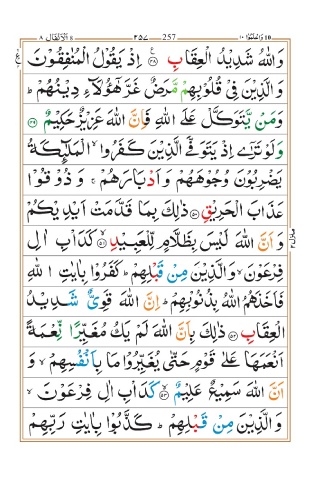 الانفال ٨ 8 ٢٥٧ 257 واعلموا ١٠ 10
وَاللّٰهُ شَدِيْدُ الْعِقَابِ ۝٤٨ اِذْ يَقُوْلُ الْمُنٰفِقُوْنَ
وَالَّذِيْنَ فِيْ قُلُوْبِهِمْ مَّرَضٌ غَرَّ هٰٓؤُلَآءِ دِيْنُهُمْ ؕ
وَمَنْ يَّتَوَكَّلْ عَلَى اللّٰهِ فَاِنَّ اللّٰهَ عَزِيْزٌ حَكِيْمٌ ۝٤٩
وَلَوْ تَرٰٓى اِذْ يَتَوَفَّى الَّذِيْنَ كَفَرُوا ۙ الْمَلٰٓئِكَةُ
يَضْرِبُوْنَ وُجُوْهَهُمْ وَاَدْبَارَهُمْ ۚ وَذُوْقُوْا
عَذَابَ الْحَرِيْقِ ۝٥٠ ذٰلِكَ بِمَا قَدَّمَتْ اَيْدِيْكُمْ
وَاَنَّ اللّٰهَ لَيْسَ بِظَلَّامٍ لِّلْعَبِيْدِ ۝٥١ كَدَاْبِ اٰلِ
فِرْعَوْنَ ۙ وَالَّذِيْنَ مِنْ قَبْلِهِمْ ؕ كَفَرُوْا بِاٰيٰتِ اللّٰهِ
فَاَخَذَهُمُ اللّٰهُ بِذُنُوْبِهِمْ ؕ اِنَّ اللّٰهَ قَوِيٌّ شَدِيْدُ
الْعِقَابِ ۝٥٢ ذٰلِكَ بِاَنَّ اللّٰهَ لَمْ يَكُ مُغَيِّرًا نِّعْمَةً
اَنْعَمَهَا عَلٰى قَوْمٍ حَتّٰى يُغَيِّرُوْا مَا بِاَنْفُسِهِمْ ۙ وَ
اَنَّ اللّٰهَ سَمِيْعٌ عَلِيْمٌ ۝٥٣ كَدَاْبِ اٰلِ فِرْعَوْنَ ۙ
وَالَّذِيْنَ مِنْ قَبْلِهِمْ ؕ كَذَّبُوْا بِاٰيٰتِ رَبِّهِمْ